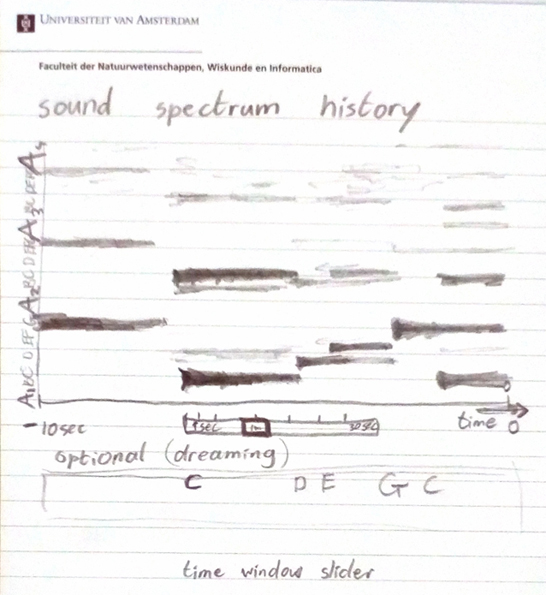 UNIVERSITEIT VAN AMSTERDAM
Faculteit der Natuurwetenschappen, Wiskunde en Informatica
sound spectrum history
A4
A3
A2
A1
-10sec
1sec
30sec
time 0
optional (dreaming)
C D E G C
time window slider